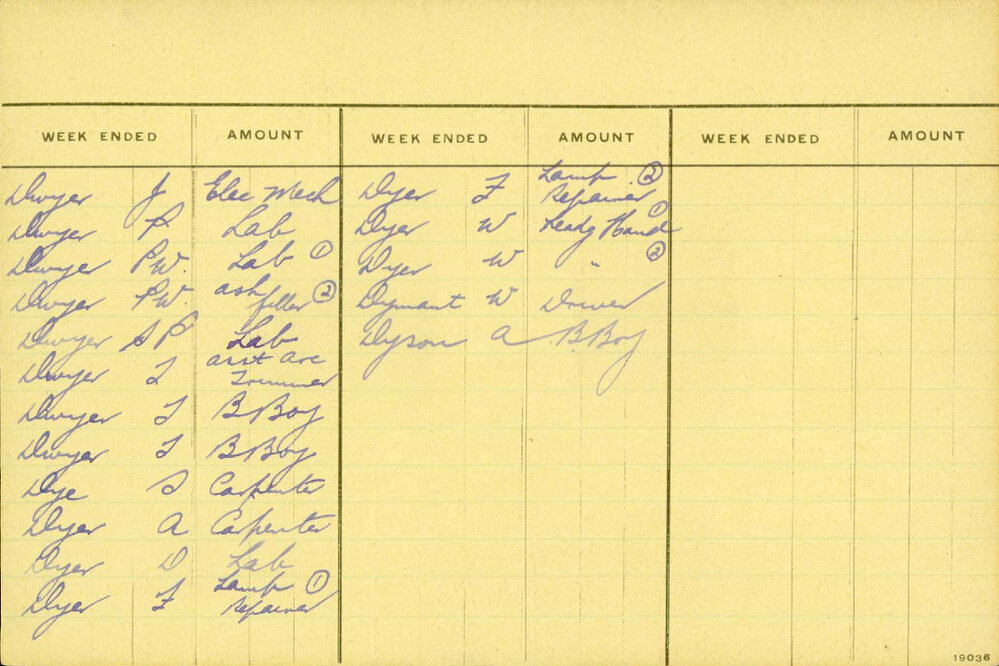 WEEK ENDED AMOUNT WEEK ENDED AMOUNT WEEK ENDED AMOUNT
Dwyer J Elec Mech
Dwyer P Lab
Dwyer P W. Lab ①
Dwyer P W. ash filler ②
Dwyer S P Lab
Dwyer T asst arc Trimmer
Dwyer T B Boy
Dwyer T B Boy
Dye S Carpenter
Dyer A Carpenter
Dyer D Lab
Dyer F Lamp ① Repairer
Dyer F Lamp ② Repairer
Dyer W Leadg Hand ①
Dyer W " ②
Dymant W Driver
Dyson A B. Boy
19036